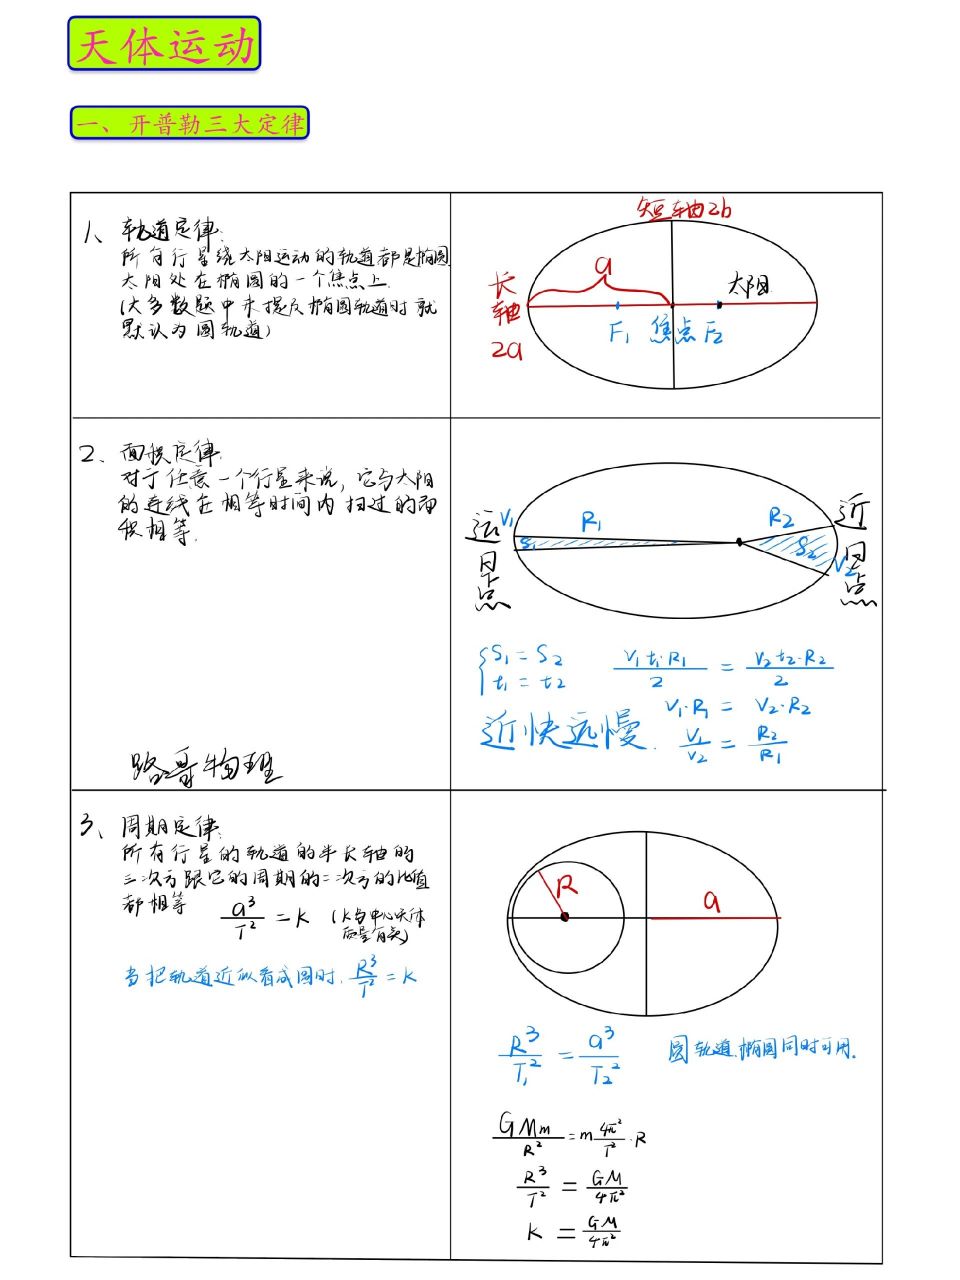 天体运动
一、开普勒三大定律
1、轨道定律:
所有行星绕太阳运动的轨道都是椭圆
太阳处在椭圆的一个焦点上
(大多数题中未提及椭圆轨道时就
默认为圆轨道)
短轴2b
a
长轴
2a
太阳
F₁ 焦点 F₂
2、面积定律:
对于任意一个行星来说,它与太阳
的连线在相等时间内扫过的面
积相等.
路哥物理
V₁ R₁ R₂ 近日点
远日点 S₁ S₂ V₂
S₁ = S₂
t₁ = t₂
V₁t₁·R₁/2 = V₂t₂·R₂/2
V₁·R₁ = V₂·R₂
近快远慢. V₁/V₂ = R₂/R₁
3、周期定律:
所有行星的轨道的半长轴的
三次方跟它的周期的二次方的比值
都相等 a³/T² = K (K与中心天体
质量有关)
当把轨道近似看成圆时. R³/T² = K
R a
R³/T₁² = a³/T₂² 圆轨道.椭圆同时可用.
GMm/R² = m 4π²/T² · R
R³/T² = GM/4π²
K = GM/4π²